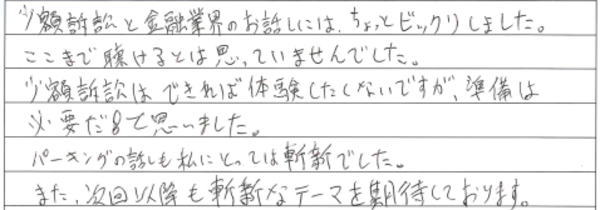 少額訴訟と金融業界のお話しには、ちょっとビックリしました。
ここまで聴けるとは思っていませんでした。
少額訴訟はできれば体験したくないですが、準備は
必要だなと思いました。
パーキングの話しも私にとっては斬新でした。
また、次回以降も斬新なテーマを期待しております。